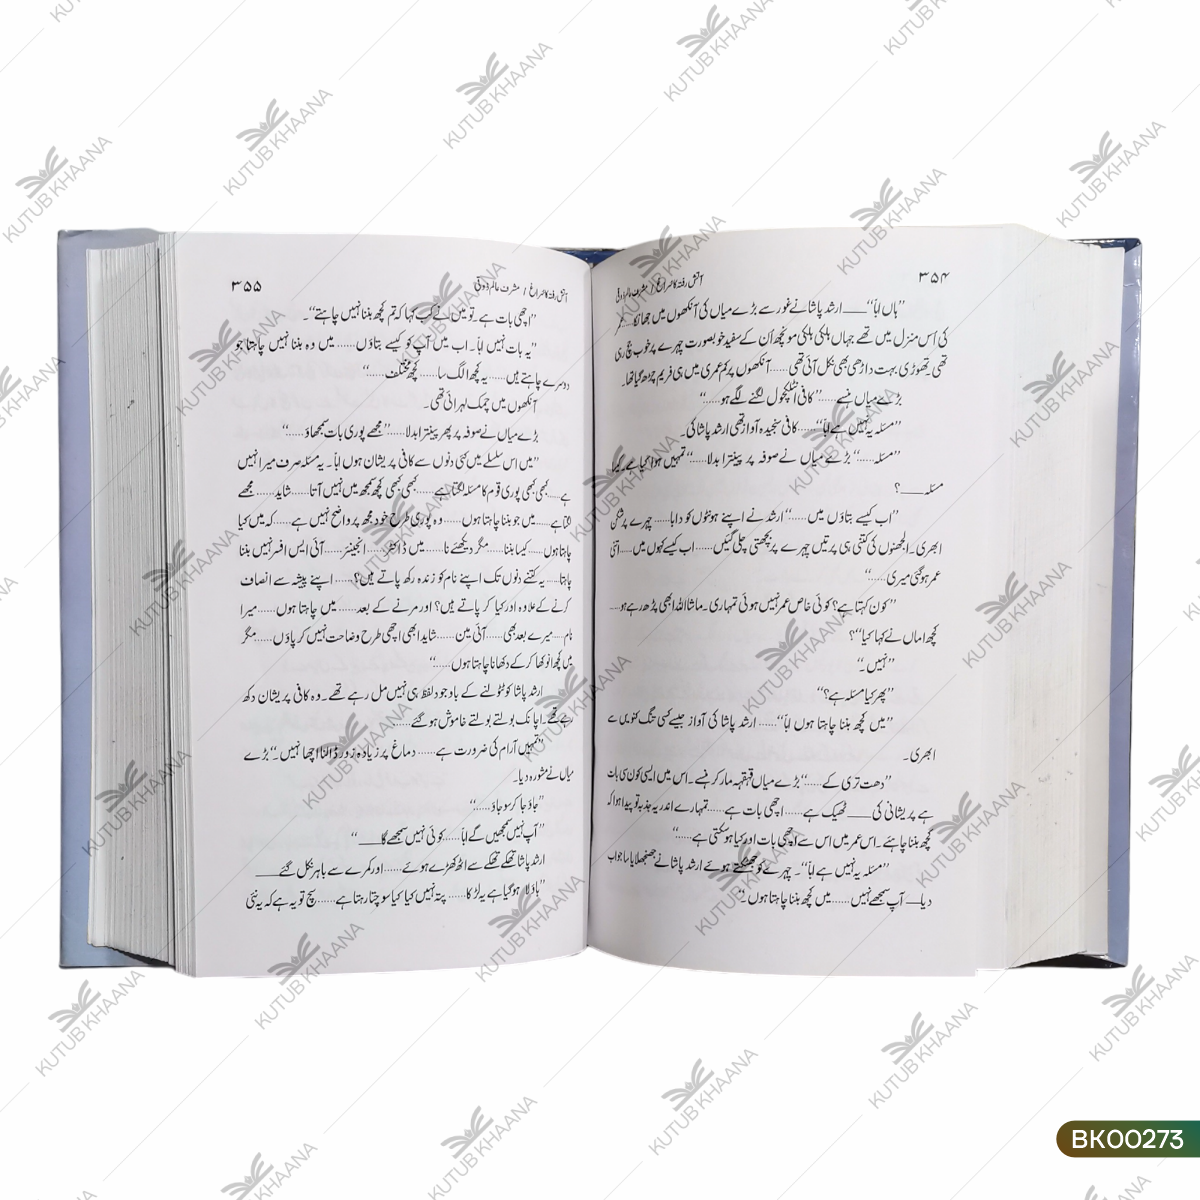 ۳۵۴
آتش رفتہ کا سراغ / مشرف عالم ذوقی
”ہاں ابا“ ـــــ ارشد پاشا نے غور سے بڑے میاں کی آنکھوں میں جھانکا......
کی اس منزل میں تھے جہاں ہلکی ہلکی مونچھ اُن کے سفید خوبصورت چہرے پر خوب جچ رہی
تھی۔ تھوڑی بہت داڑھی بھی نکل آئی تھی...... آنکھوں پر کم عمری میں ہی فریم چڑھ گیا تھا۔
بڑے میاں ہنسے......”کافی انٹلکچول لگنے لگے ہو.....“
”مسئلہ یہ نہیں ہے ابا“...... کافی سنجیدہ آواز تھی ارشد پاشا کی۔
”مسئلہ......“ بڑے میاں نے صوفہ پر پینترا بدلا......”تمہیں ہوا کیا ہے۔ کیا
مسئلہ ـــــ ؟
”اب کیسے بتاؤں میں......“ ارشد نے اپنے ہونٹوں کو دابا...... چہرے پر شکن
ابھری۔ الجھنوں کی کتنی ہی پرتیں چہرے پر بچھتی چلی گئیں...... اب کیسے کہوں میں..... اتنی
عمر ہو گئی میری.....“
”کون کہتا ہے؟ کوئی خاص عمر نہیں ہوئی تمہاری۔ ماشا اللہ ابھی پڑھ رہے ہو.....
کچھ اماں نے کہا کیا“؟
”نہیں۔“
”پھر کیا مسئلہ ہے؟“
”میں کچھ بننا چاہتا ہوں ابا“...... ارشد پاشا کی آواز جیسے کسی تنگ کنویں سے
ابھری۔
”دھت تری کے.....“ بڑے میاں قہقہہ مار کر ہنسے۔ اس میں ایسی کون سی بات
ہے پریشانی کی ـــــ ٹھیک ہے...... اچھی بات ہے...... تمہارے اندر یہ جذبہ تو پیدا ہوا کہ
کچھ بننا چاہئے۔ اس عمر میں اس سے اچھی بات اور کیا ہو سکتی ہے.....“
”مسئلہ یہ نہیں ہے ابا“۔ چہرے کو جھٹکتے ہوئے ارشد پاشا نے جھنجھلایا سا جواب
دیا ـــ آپ سمجھے نہیں...... میں کچھ بننا چاہتا ہوں۔“
۳۵۵
آتش رفتہ کا سراغ / مشرف عالم ذوقی
”اچھی بات ہے۔ تو میں نے کب کہا کہ تم کچھ بننا نہیں چاہتے“۔
”یہ بات نہیں ابا۔ اب میں آپ کو کیسے بتاؤں...... میں وہ بننا نہیں چاہتا جو
دوسرے چاہتے ہیں...... یہ کچھ الگ سا...... کچھ مختلف......“
آنکھوں میں چمک لہرائی تھی۔
بڑے میاں نے صوفہ پر پھر پینترا بدلا......”مجھے پوری بات سمجھاؤ......“
”میں اس سلسلے میں کئی دنوں سے کافی پریشان ہوں ابا۔ یہ مسئلہ صرف میرا نہیں
ہے..... کبھی کبھی پوری قوم کا مسئلہ لگتا ہے...... کبھی کبھی کچھ سمجھ میں نہیں آتا...... شاید...... مجھے
لگتا ہے..... میں جو بننا چاہتا ہوں...... وہ پوری طرح خود مجھ پر واضح نہیں ہے..... کہ میں کیا
چاہتا ہوں..... کیسا بننا...... مگر دیکھئے نا...... میں ڈاکٹر...... انجینئر...... آئی ایس افسر نہیں بننا
چاہتا..... یہ کتنے دنوں تک اپنے نام کو زندہ رکھ پاتے ہیں؟..... اپنے پیشہ سے انصاف
کرنے کے علاوہ اور کیا کر پاتے ہیں؟ اور مرنے کے بعد...... میں چاہتا ہوں...... میرا
نام...... میرے بعد بھی...... آئی مین...... شاید ابھی اچھی طرح وضاحت نہیں کر پاؤں..... مگر
میں کچھ انوکھا کر کے دکھانا چاہتا ہوں.....“
ارشد پاشا کو ٹٹولنے کے باوجود لفظ ہی نہیں مل رہے تھے۔ وہ کافی پریشان دکھ
رہے تھے۔ اچانک بولتے بولتے خاموش ہو گئے.....
”تمہیں آرام کی ضرورت ہے...... دماغ پر زیادہ زور ڈالنا اچھا نہیں۔“ بڑے
میاں نے مشورہ دیا۔
”جاؤ جا کر سو جاؤ.....“
”آپ نہیں سمجھیں گے ابا...... کوئی نہیں سمجھے گا ـــــ“
ارشد پاشا تھکے تھکے سے اٹھ کھڑے ہوئے...... اور کمرے سے باہر نکل گئے ـــــ
”باؤلا ہو گیا ہے یہ لڑکا...... پتہ نہیں کیا کیا سوچتا رہتا ہے..... سچ تو یہ ہے کہ یہ نئی
KUTUB KHAANA
BK00273